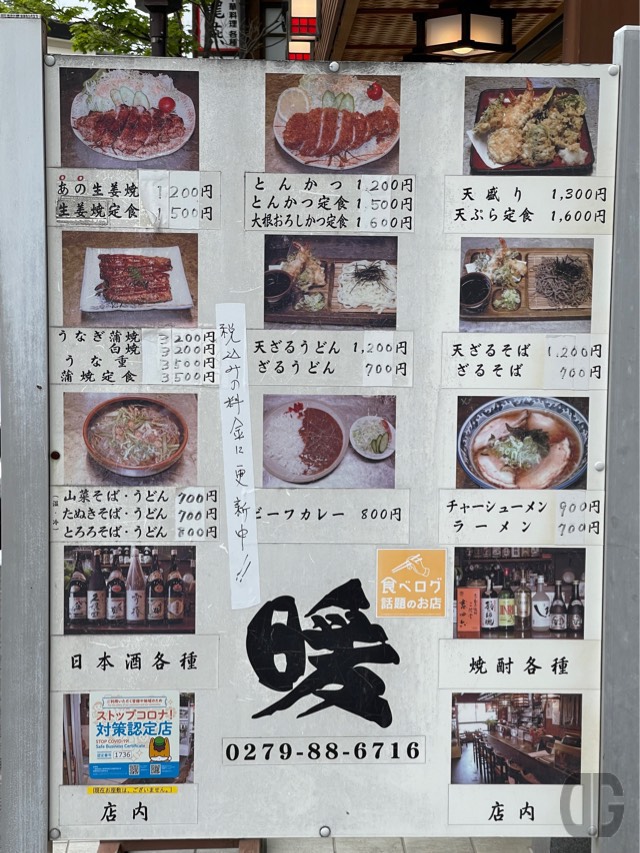 華料理 各種
あの生姜焼 1200円
生姜焼定食 1500円
とんかつ 1,200円
とんかつ定食 1,500円
大根おろしかつ定食 1600円
天盛り 1,300円
天ぷら定食 1,600円
うなぎ蒲焼 3200円
白焼 3200円
うな重 3500円
蒲焼定食 3500円
税込みの料金に更新中!!
天ざるうどん 1,200円
ざるうどん 700円
天ざるそば 1,200円
ざるそば 700円
温・冷
山菜そば・うどん 700円
たぬきそば・うどん 700円
とろろそば・うどん 800円
ビーフカレー 800円
チャーシューメン 900円
ラーメン 700円
食べログ
話題のお店
日本酒各種
暖
焼酎各種
0279-88-6716
ストップコロナ!
対策認定店
STOP COVID-19!
Safe Business Certificate
1736
(現在お座敷は、ございません。)
店内
店内
DG